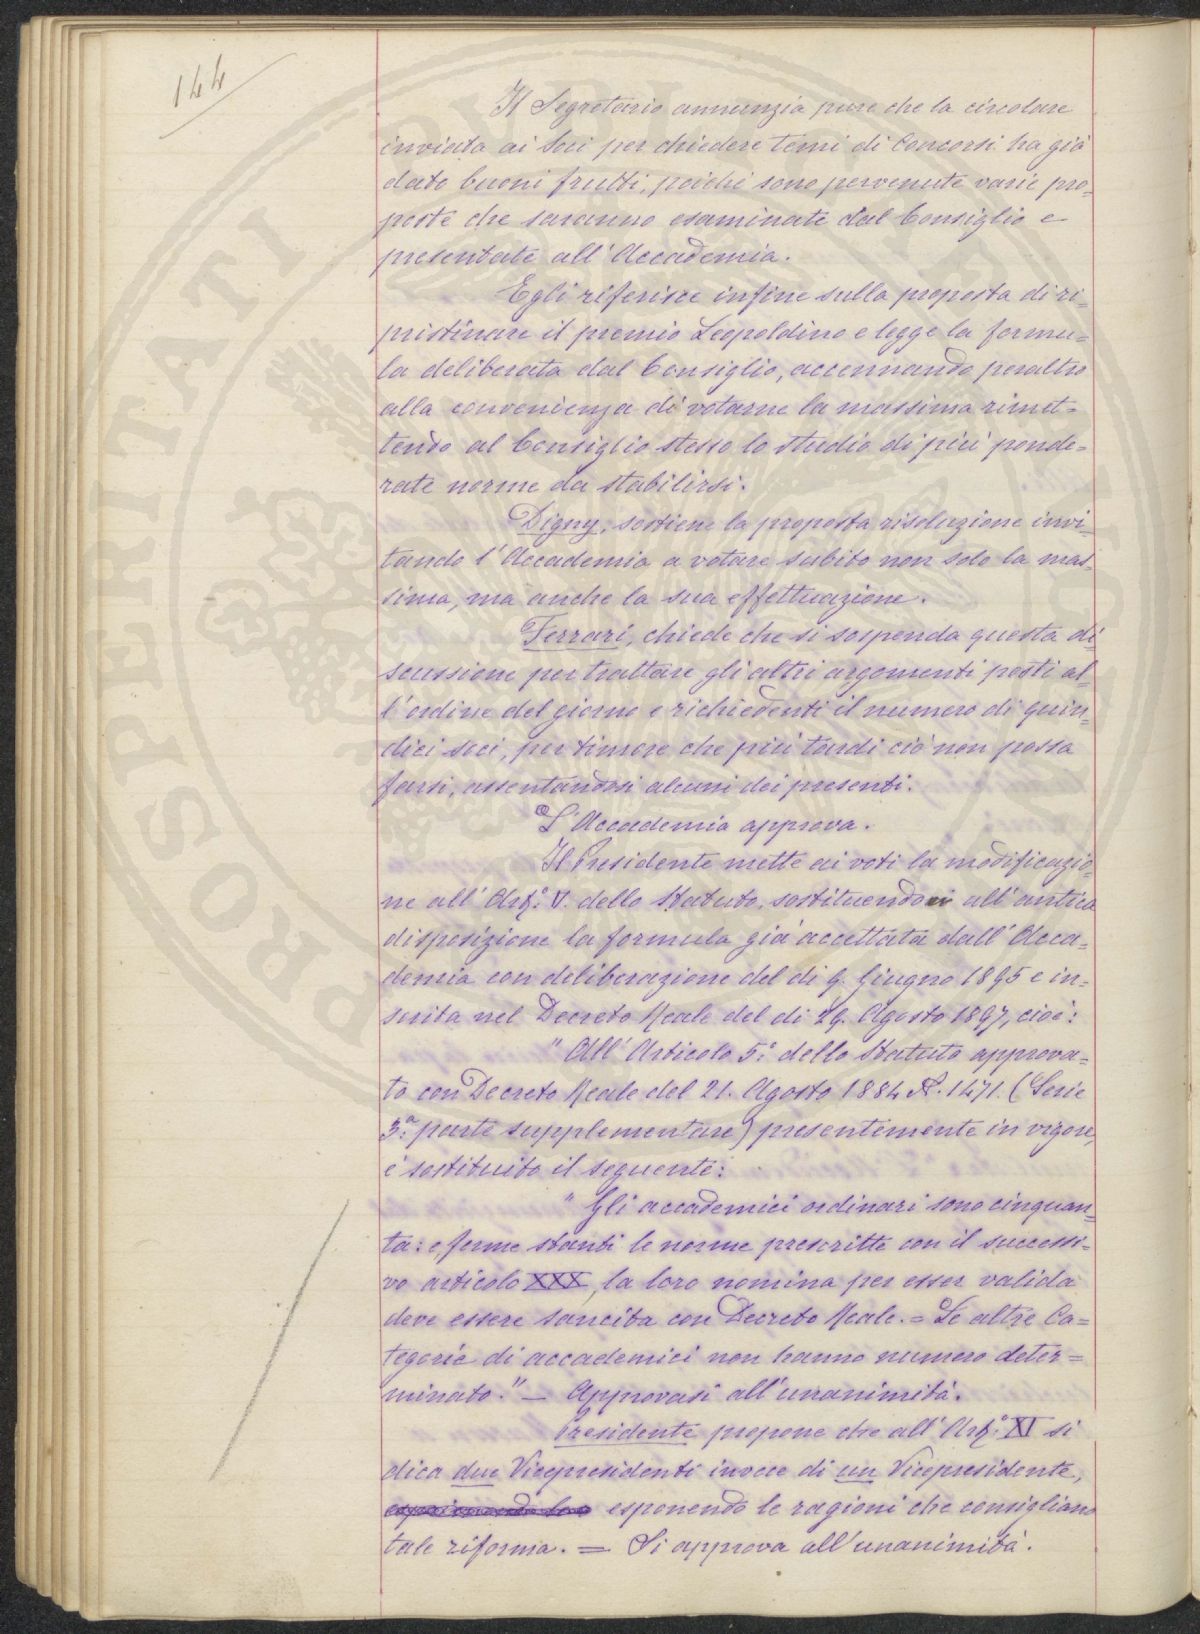 144
Il Segretario annunzia pure che la circolare
inviata ai Soci per chiedere temi di Concorsi ha già
dato buoni frutti, poichè sono pervenute varie pro=
poste che saranno esaminate dal Consiglio e
presentate all'Accademia.
Egli riferisce infine sulla proposta di ri=
pristinare il premio Leopoldino e legge la formu=
la deliberata dal Consiglio, accennando peraltro
alla convenienza di votarne la massima rimet=
tendo al Consiglio stesso lo studio di più ponde=
rate norme da stabilirsi.
Digny, sostiene la proposta risoluzione invi=
tando l'Accademia a votare subito non solo la mas=
sima, ma anche la sua effettuazione.
Ferrari, chiede che si sospenda questa di=
scussione per trattare gli altri argomenti posti al=
l'ordine del giorno e richiedenti il numero di quin=
dici soci, per timore che più tardi ciò non possa
farsi, assentandosi alcuni dei presenti.
L'Accademia approva.
Il Presidente mette ai voti la modificazio=
ne all'Art.° V. dello Statuto, sostituendo all'antica
disposizione la formula già accettata dall'Acca=
demia con deliberazione del dì 9. Giugno 1895 e in=
serita nel Decreto Reale del dì 29. Agosto 1897, cioè:
"All'Articolo 5.° dello Statuto approva=
to con Decreto Reale del 21. Agosto 1884 N. 1471. (Serie
3.a parte supplementare) presentemente in vigore,
è sostituito il seguente:
"Gli accademici ordinari sono cinquan=
ta: e ferme stanti le norme prescritte con il successi=
vo articolo XXX, la loro nomina per esser valida
deve essere sancita con Decreto Reale. = Le altre Ca=
tegorie di accademici non hanno numero deter=
minato." — Approvasi all'unanimità.
Presidente propone che all'Art.° XI si
dica due Vicepresidenti invece di un Vicepresidente,
esponendo le ragioni che consigliano
tale riforma. = Si approva all'unanimità.
PROSPERITATI